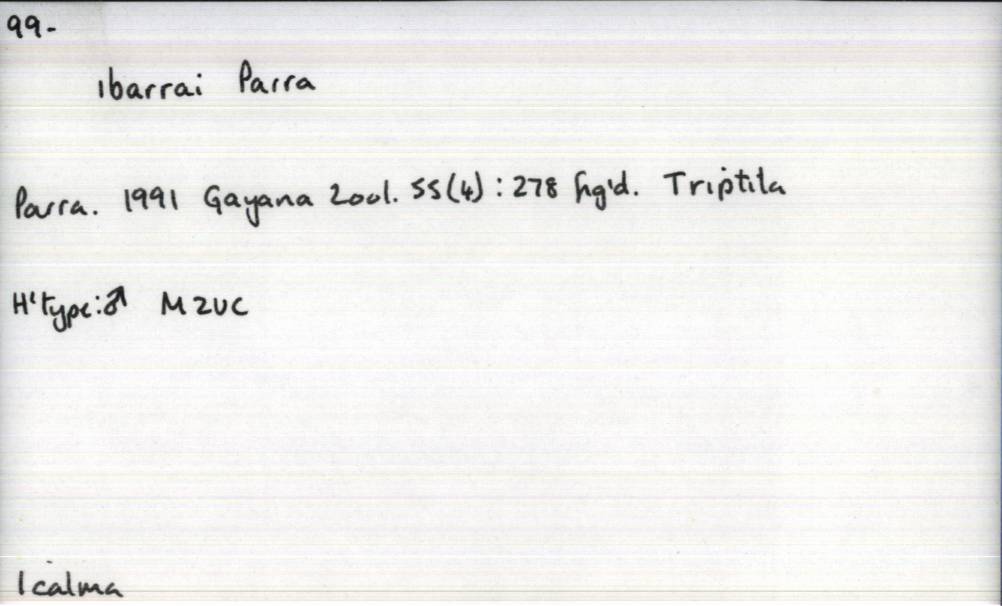 99-
ibarrai Parra
Parra. 1991 Gayana Zool. 55(4): 278 fig'd. Triptila
H'type: ♂ MZUC
Icalma